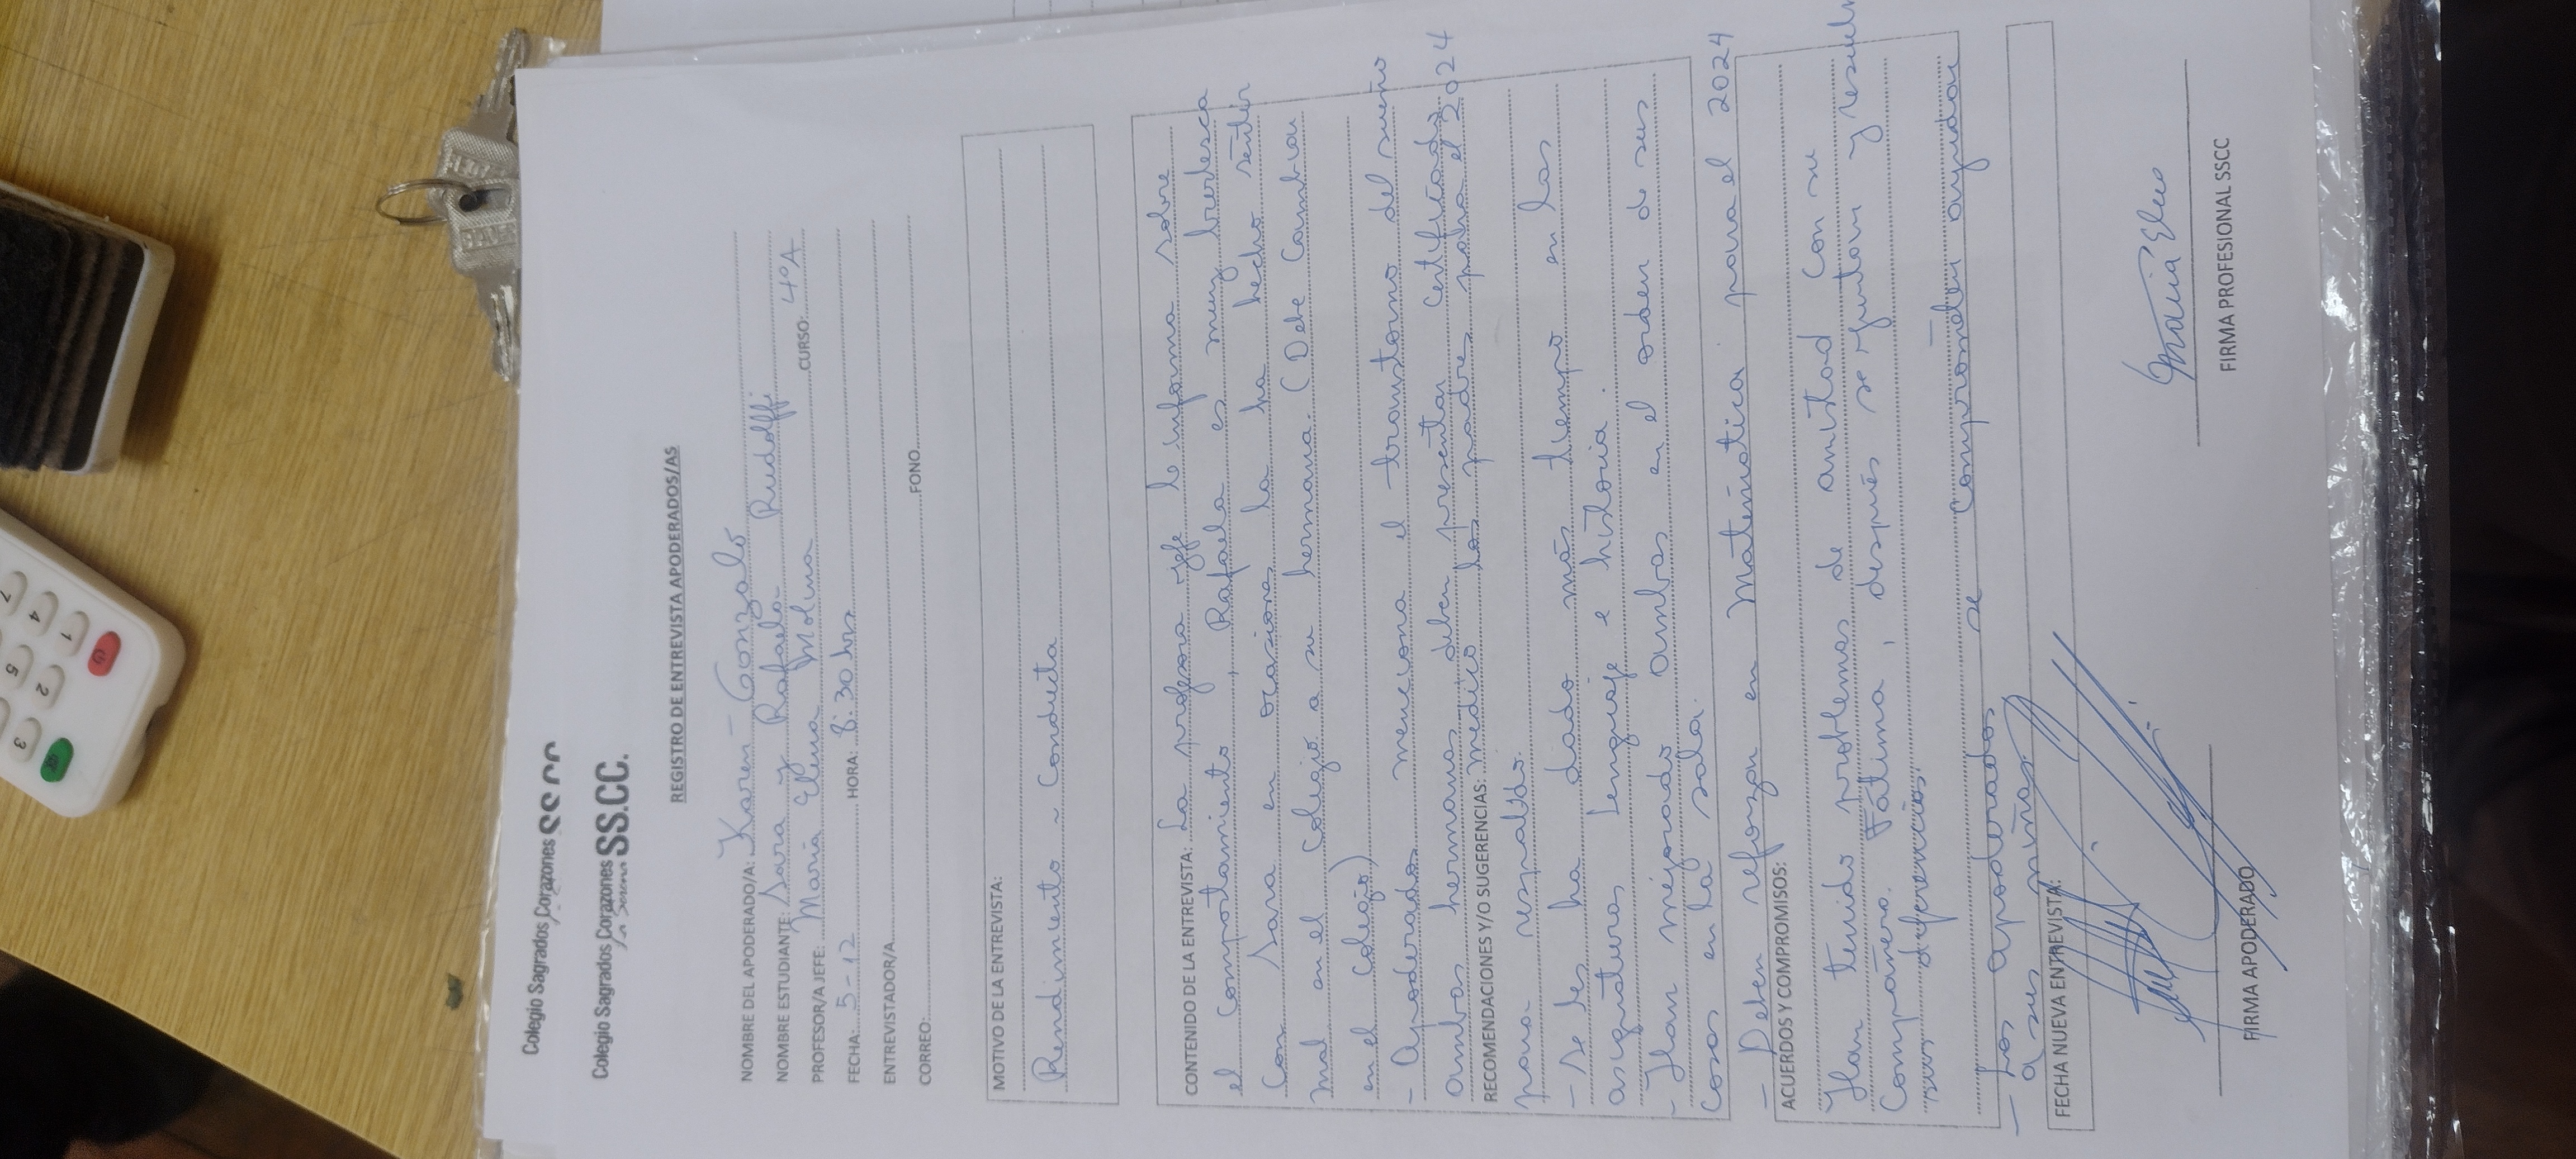 Colegio Sagrados Corazones SS.CC.
Colegio Sagrados Corazones SS.CC.
La Serena
REGISTRO DE ENTREVISTA APODERADOS/AS
NOMBRE DEL APODERADO/A: Karen - Gonzalo
NOMBRE ESTUDIANTE: Sara y Rafaela Rudolffi
PROFESOR/A JEFE: María Elena Molina CURSO: 4°A
FECHA: 5-12 HORA: 8:30 hrs
ENTREVISTADOR/A
CORREO: FONO
MOTIVO DE LA ENTREVISTA:
Rendimiento ~ Conducta
CONTENIDO DE LA ENTREVISTA: La profesora jefe le informa sobre
el comportamiento, Rafaela es muy burlesca
con Sara en ocasiones la ha hecho sentir
mal en el colegio a su hermana. (Debe cambiar
en el colegio)
- Apoderados menciona el transtorno del sueño
ambas hermanas, deben presentar certificado
RECOMENDACIONES Y/O SUGERENCIAS: medico los padres para el 2024
para respaldo.
- Se les ha dado más tiempo en las
asignaturas Lenguaje e historia.
- Han mejorado ambas en el orden de sus
cosas en la sala.
- Deben reforzar en Matemática para el 2024
ACUERDOS Y COMPROMISOS:
Han tenido problemas de amistad con su
compañera. Fátima, después se juntan y
sus diferencias.
- Los apoderados se comprometen ayudar
a sus niñas
FECHA NUEVA ENTREVISTA:
FIRMA APODERADO
María Elena
FIRMA PROFESIONAL SSCC
1
2
3
4
5
7